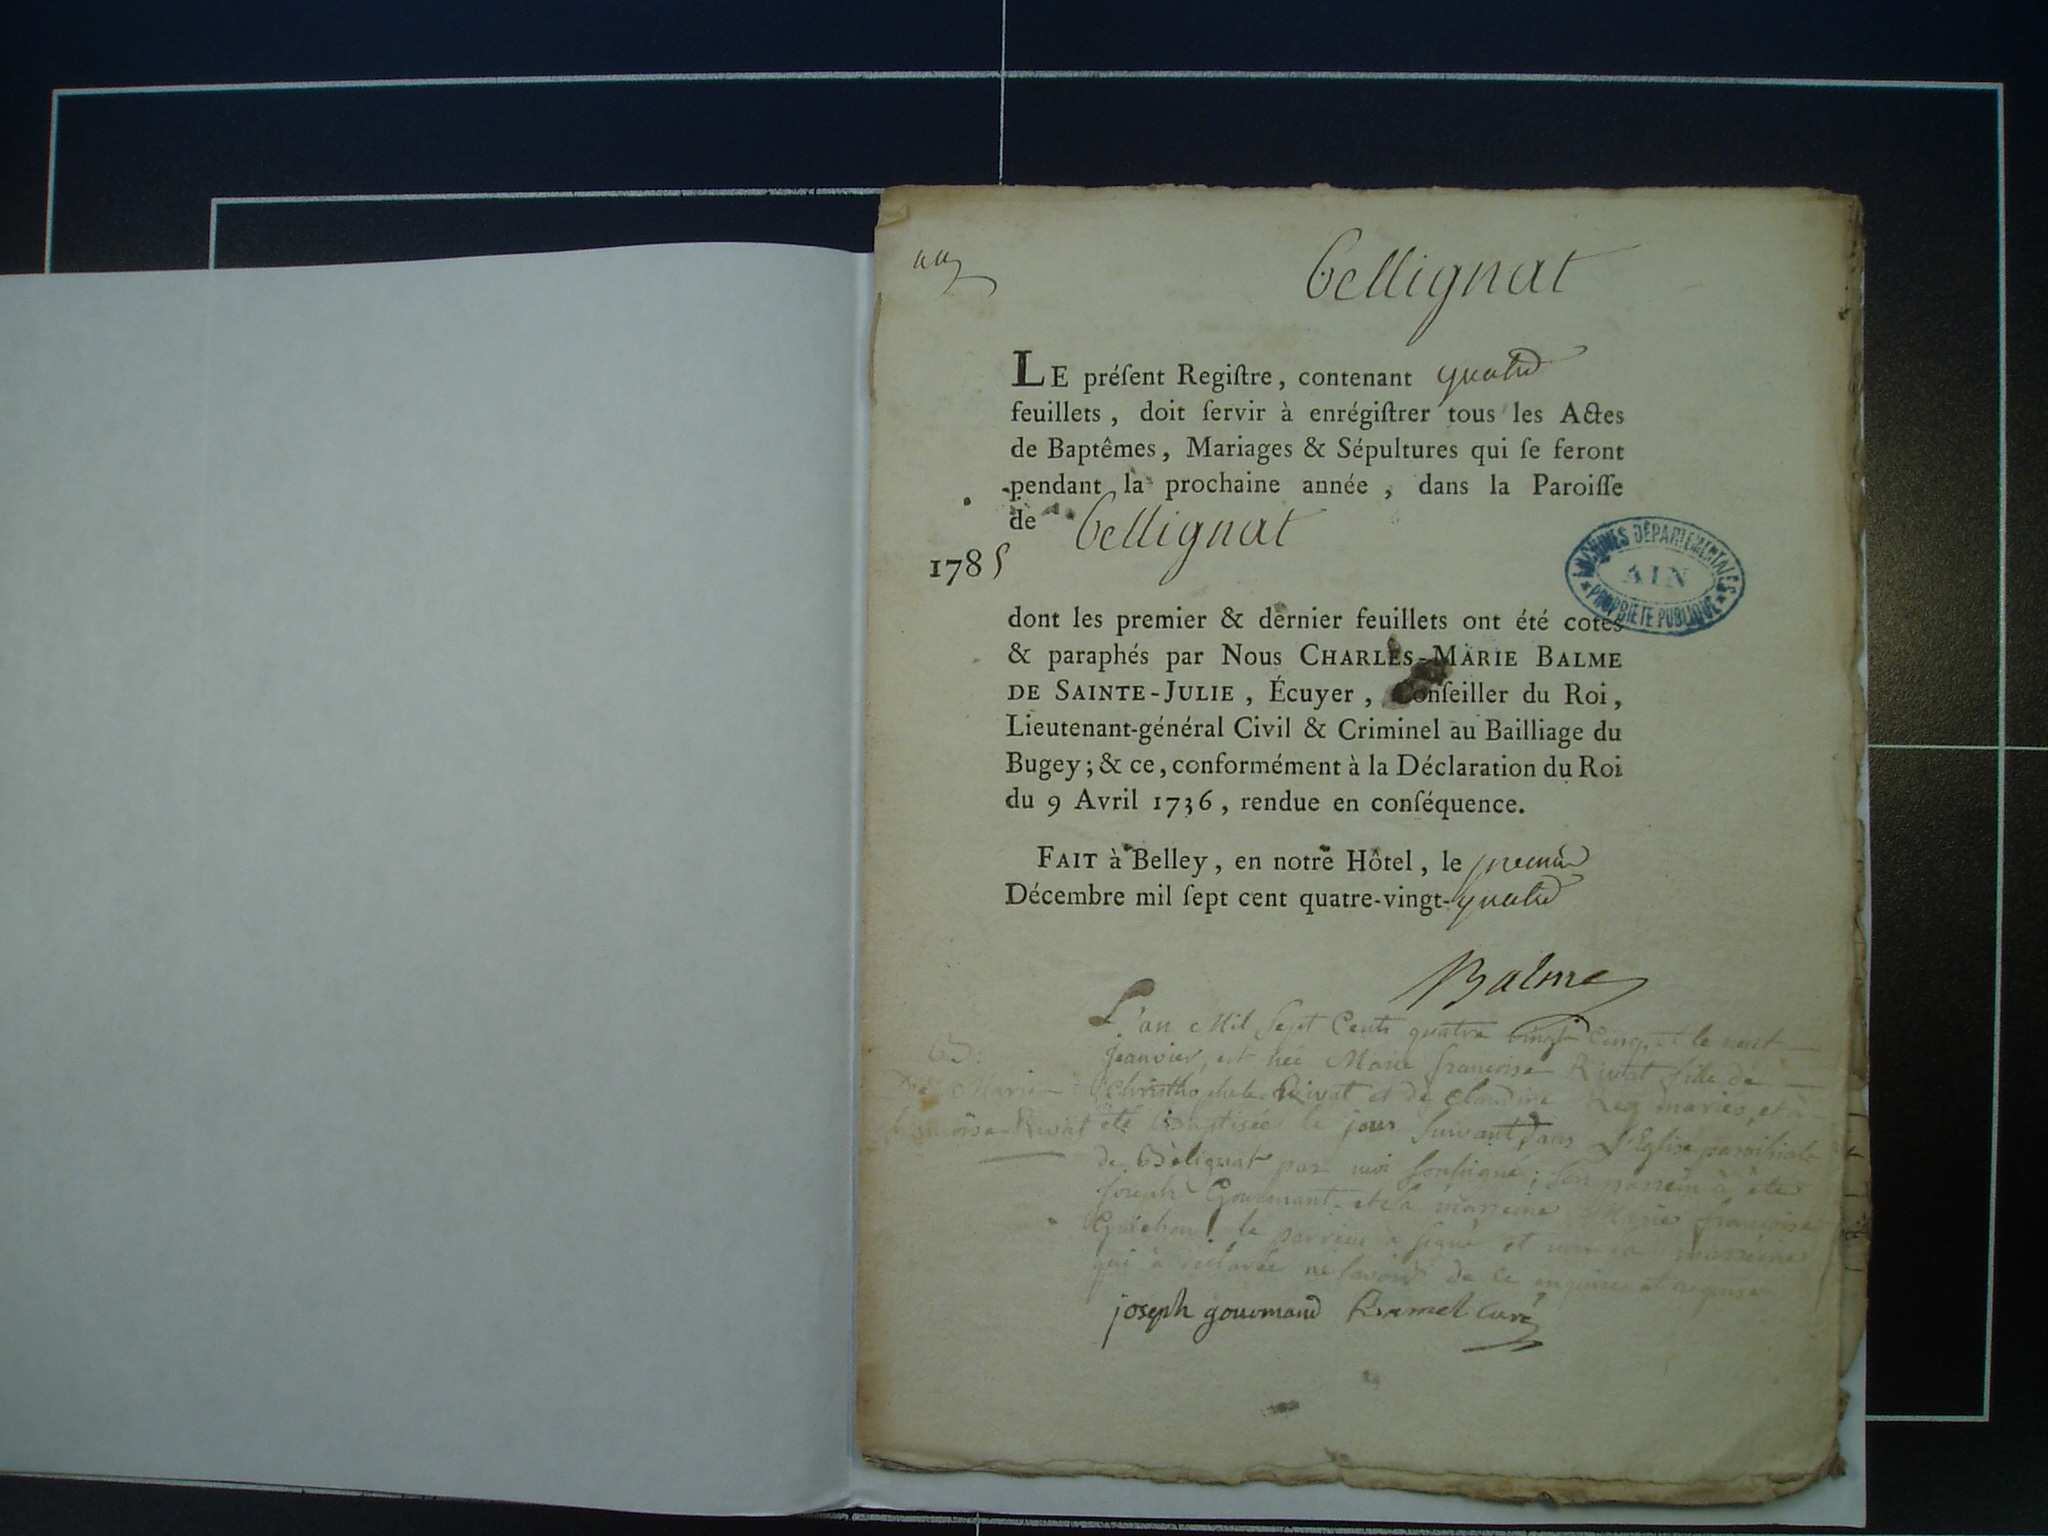 Bellignat
LE préſent Regiſtre, contenant quatre
feuillets, doit ſervir à enrégiſtrer tous les Actes
de Baptêmes, Mariages & Sépultures qui ſe feront
pendant la prochaine année, dans la Paroiſſe
de Bellignat
1785
ARCHIVES DÉPARTEMENTALES
AIN
PROPRIÉTÉ PUBLIQUE
dont les premier & dernier feuillets ont été cotés
& paraphés par Nous CHARLES-MARIE BALME
DE SAINTE-JULIE, Écuyer, Conſeiller du Roi,
Lieutenant-général Civil & Criminel au Bailliage du
Bugey; & ce, conformément à la Déclaration du Roi
du 9 Avril 1736, rendue en conſéquence.
FAIT à Belley, en notre Hôtel, le premier
Décembre mil ſept cent quatre-vingt-quatre
Balme
L'an Mil Sept Cents quatre vingt Cinq, et le
Jeanvier, est née Marie françoise Rivat fille de
B:
de Marie
françoise Rivat
Christhophele Rivat et de Claudine mariés, et à
été Baptisée le jour Suivant, dans L'Eglise paroissiale
de Bélignat par moi soussigné; Son parrein à été
Joseph Gourmant et la marreine Marie françoise
Guichon. le parrein à signé et non la marreine
qui à déclarée ne savoir de ce enquise et requise
joseph gourmand Ramel curé